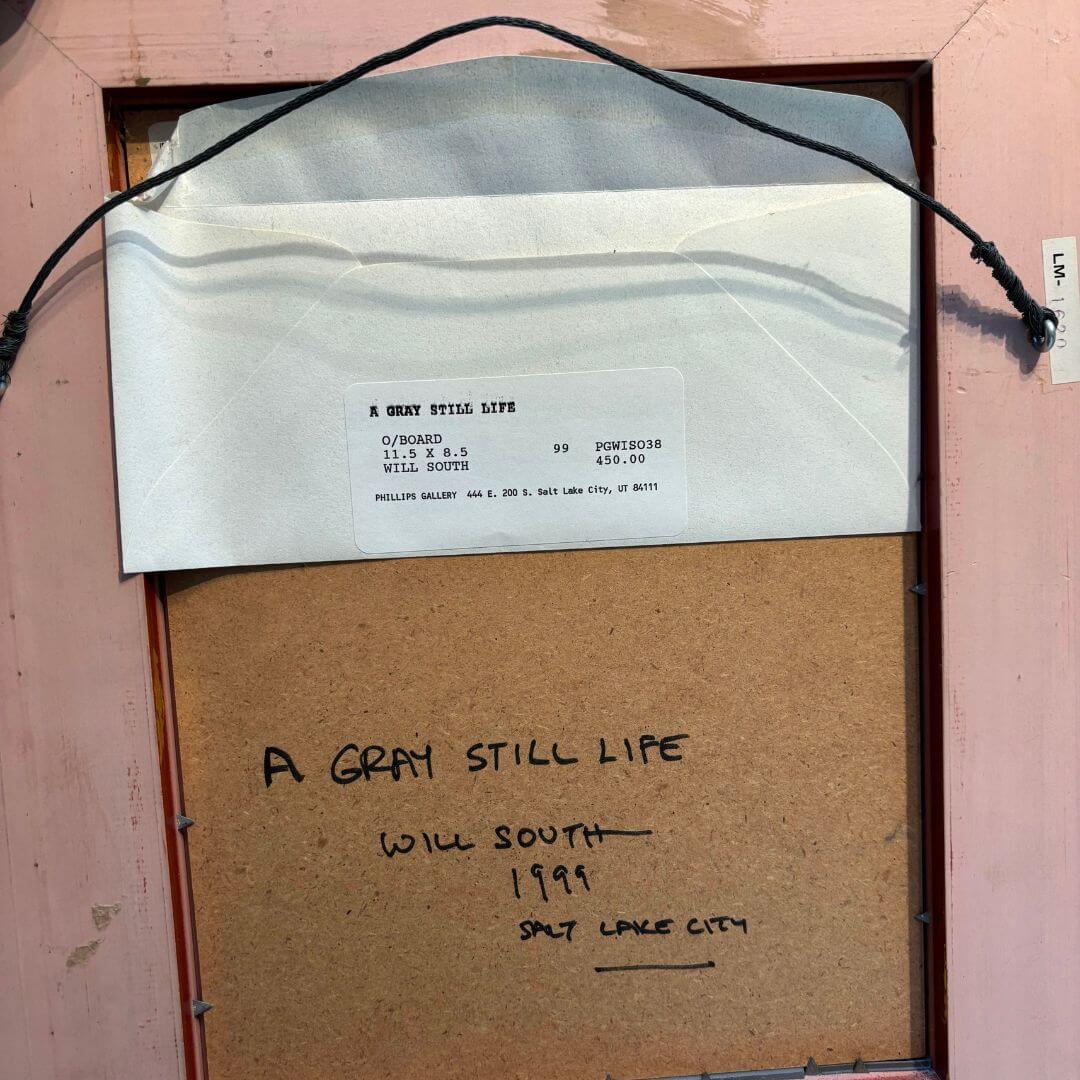 LM- 1690
A GRAY STILL LIFE
O/BOARD
11.5 X 8.5 99 PGWISO38
WILL SOUTH 450.00
PHILLIPS GALLERY 444 E. 200 S. Salt Lake City, UT 84111
A GRAY STILL LIFE
WILL SOUTH
1999
SALT LAKE CITY